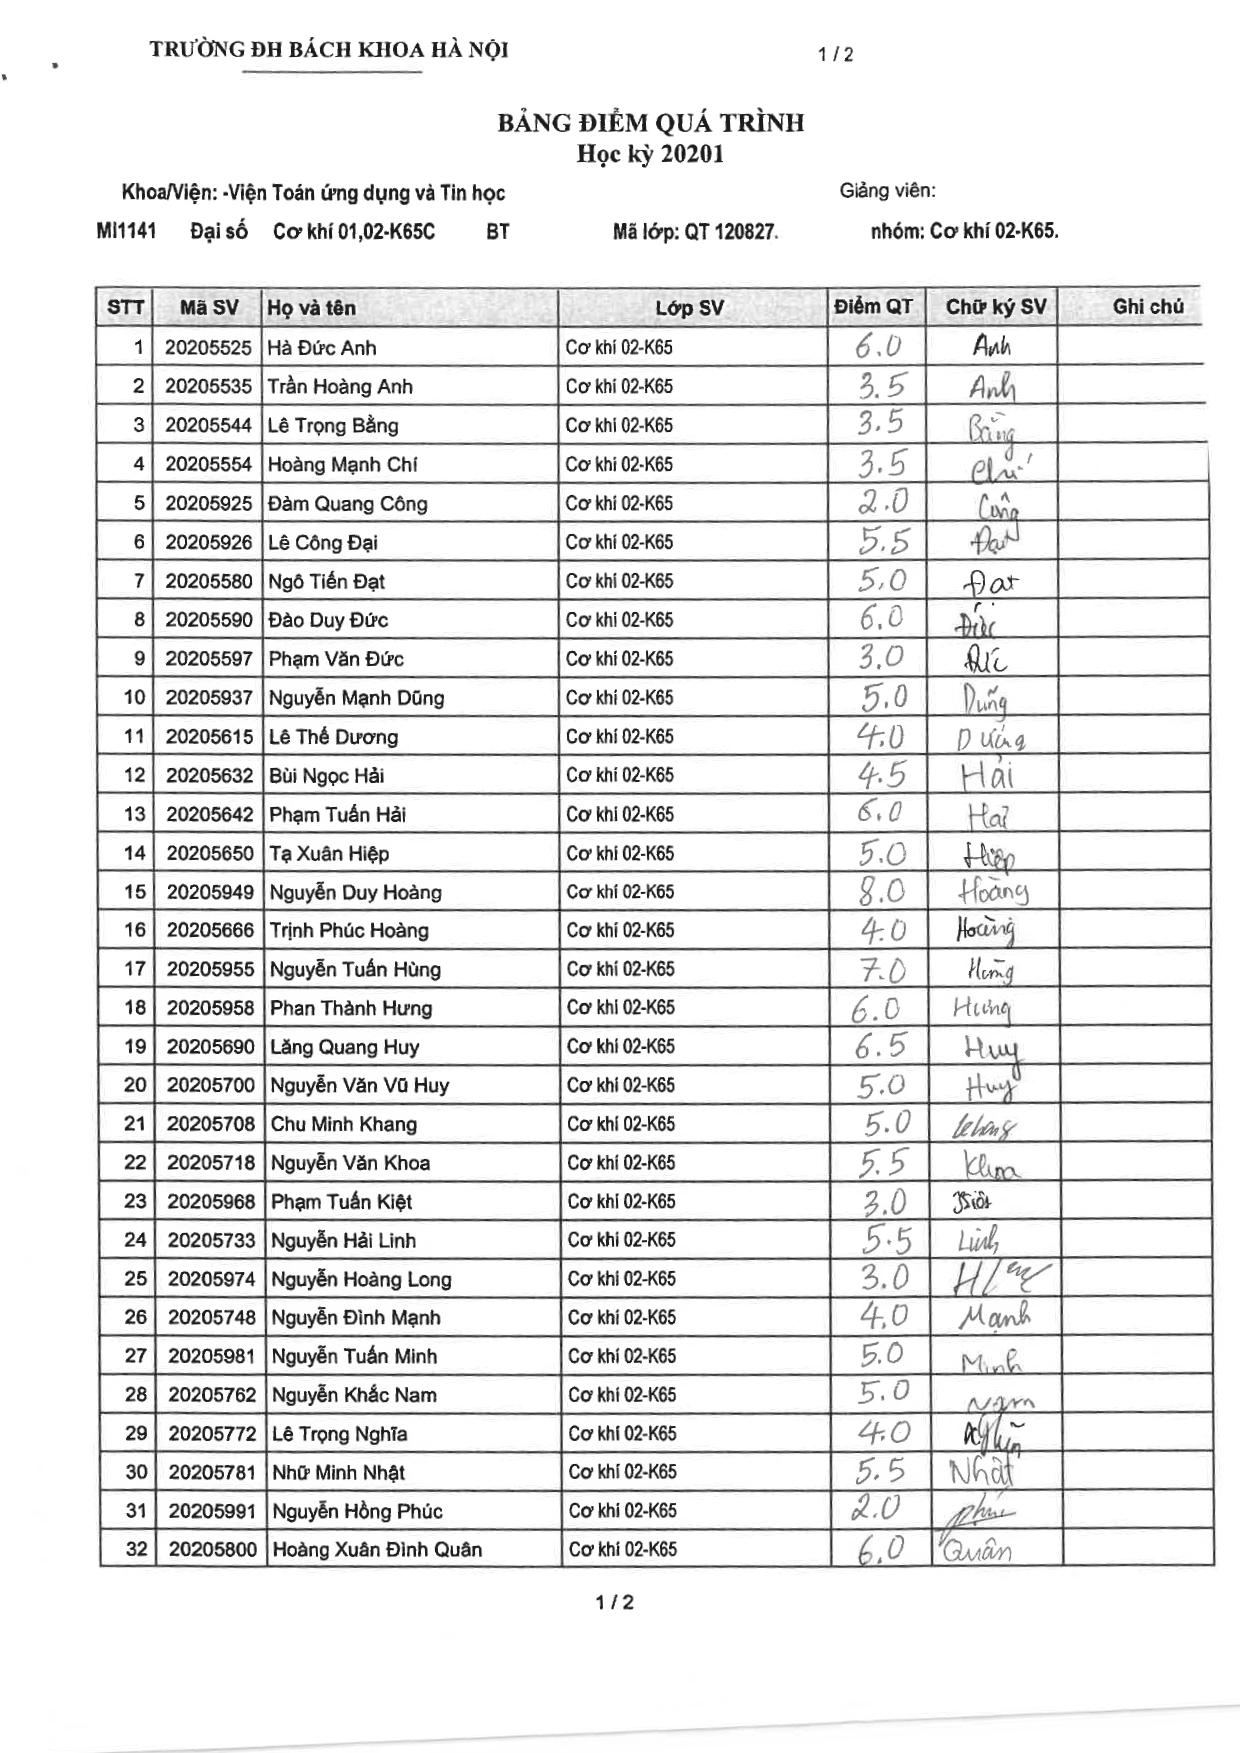 TRƯỜNG ĐH BÁCH KHOA HÀ NỘI 1 / 2
BẢNG ĐIỂM QUÁ TRÌNH
Học kỳ 20201
Khoa/Viện: -Viện Toán ứng dụng và Tin học Giảng viên:
MI1141 Đại số Cơ khí 01,02-K65C BT Mã lớp: QT 120827. nhóm: Cơ khí 02-K65.
STT Mã SV Họ và tên Lớp SV Điểm QT Chữ ký SV Ghi chú
1 20205525 Hà Đức Anh Cơ khí 02-K65 6.0 Anh
2 20205535 Trần Hoàng Anh Cơ khí 02-K65 3.5 Anh
3 20205544 Lê Trọng Bằng Cơ khí 02-K65 3.5 Bằng
4 20205554 Hoàng Mạnh Chí Cơ khí 02-K65 3.5 Chí
5 20205925 Đàm Quang Công Cơ khí 02-K65 2.0 Công
6 20205926 Lê Công Đại Cơ khí 02-K65 5.5 Đại
7 20205580 Ngô Tiến Đạt Cơ khí 02-K65 5.0 Đạt
8 20205590 Đào Duy Đức Cơ khí 02-K65 6.0 Đức
9 20205597 Phạm Văn Đức Cơ khí 02-K65 3.0 Đức
10 20205937 Nguyễn Mạnh Dũng Cơ khí 02-K65 5.0 Dũng
11 20205615 Lê Thế Dương Cơ khí 02-K65 4.0 Dương
12 20205632 Bùi Ngọc Hải Cơ khí 02-K65 4.5 Hải
13 20205642 Phạm Tuấn Hải Cơ khí 02-K65 6.0 Hải
14 20205650 Tạ Xuân Hiệp Cơ khí 02-K65 5.0 Hiệp
15 20205949 Nguyễn Duy Hoàng Cơ khí 02-K65 8.0 Hoàng
16 20205666 Trịnh Phúc Hoàng Cơ khí 02-K65 4.0 Hoàng
17 20205955 Nguyễn Tuấn Hùng Cơ khí 02-K65 7.0 Hùng
18 20205958 Phan Thành Hưng Cơ khí 02-K65 6.0 Hưng
19 20205690 Lăng Quang Huy Cơ khí 02-K65 6.5 Huy
20 20205700 Nguyễn Văn Vũ Huy Cơ khí 02-K65 5.0 Huy
21 20205708 Chu Minh Khang Cơ khí 02-K65 5.0 Khang
22 20205718 Nguyễn Văn Khoa Cơ khí 02-K65 5.5 Khoa
23 20205968 Phạm Tuấn Kiệt Cơ khí 02-K65 3.0 Kiệt
24 20205733 Nguyễn Hải Linh Cơ khí 02-K65 5.5 Linh
25 20205974 Nguyễn Hoàng Long Cơ khí 02-K65 3.0
26 20205748 Nguyễn Đình Mạnh Cơ khí 02-K65 4.0 Mạnh
27 20205981 Nguyễn Tuấn Minh Cơ khí 02-K65 5.0 Minh
28 20205762 Nguyễn Khắc Nam Cơ khí 02-K65 5.0 Nam
29 20205772 Lê Trọng Nghĩa Cơ khí 02-K65 4.0
30 20205781 Nhữ Minh Nhật Cơ khí 02-K65 5.5 Nhật
31 20205991 Nguyễn Hồng Phúc Cơ khí 02-K65 2.0 phúc
32 20205800 Hoàng Xuân Đình Quân Cơ khí 02-K65 6.0 Quân
1 / 2